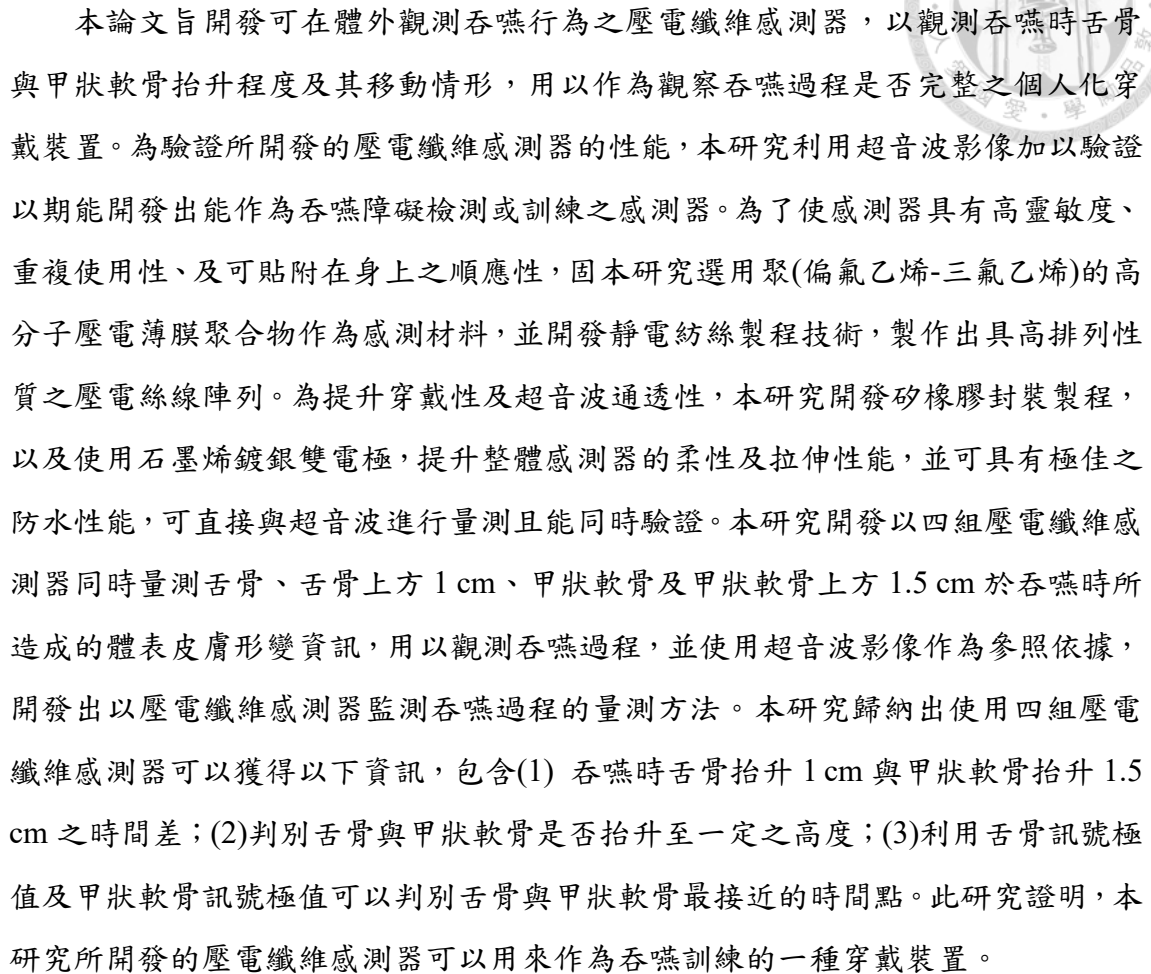 本論文旨開發可在體外觀測吞嚥行為之壓電纖維感測器，以觀測吞嚥時舌骨
與甲狀軟骨抬升程度及其移動情形，用以作為觀察吞嚥過程是否完整之個人化穿
戴裝置。為驗證所開發的壓電纖維感測器的性能，本研究利用超音波影像加以驗證
以期能開發出能作為吞嚥障礙檢測或訓練之感測器。為了使感測器具有高靈敏度、
重複使用性、及可貼附在身上之順應性，固本研究選用聚(偏氟乙烯-三氟乙烯)的高
分子壓電薄膜聚合物作為感測材料，並開發靜電紡絲製程技術，製作出具高排列性
質之壓電絲線陣列。為提升穿戴性及超音波通透性，本研究開發矽橡膠封裝製程，
以及使用石墨烯鍍銀雙電極，提升整體感測器的柔性及拉伸性能，並可具有極佳之
防水性能，可直接與超音波進行量測且能同時驗證。本研究開發以四組壓電纖維感
測器同時量測舌骨、舌骨上方 1 cm、甲狀軟骨及甲狀軟骨上方 1.5 cm 於吞嚥時所
造成的體表皮膚形變資訊，用以觀測吞嚥過程，並使用超音波影像作為參照依據，
開發出以壓電纖維感測器監測吞嚥過程的量測方法。本研究歸納出使用四組壓電
纖維感測器可以獲得以下資訊，包含(1) 吞嚥時舌骨抬升 1 cm 與甲狀軟骨抬升 1.5
cm 之時間差；(2)判別舌骨與甲狀軟骨是否抬升至一定之高度；(3)利用舌骨訊號極
值及甲狀軟骨訊號極值可以判別舌骨與甲狀軟骨最接近的時間點。此研究證明，本
研究所開發的壓電纖維感測器可以用來作為吞嚥訓練的一種穿戴裝置。
愛・學